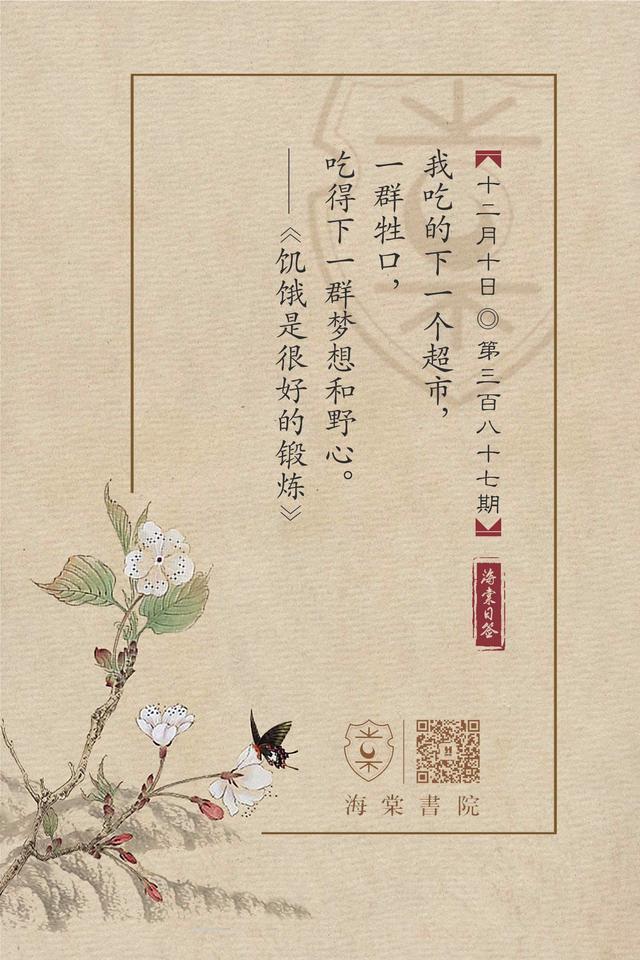 十二月十日◎第三百八十七期
海棠日签
我吃的下一个超市，
一群牲口，
吃得下一群梦想和野心。
——《饥饿是很好的锻炼》
海棠書院